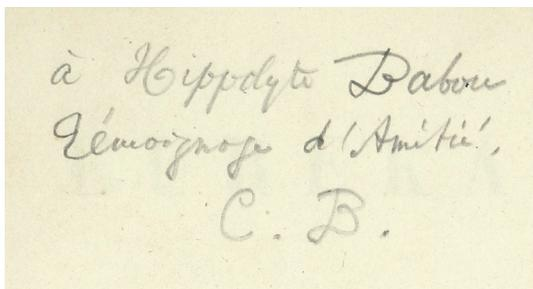 à Hippolyte Babou
Témoignage d'Amitié.
C. B.